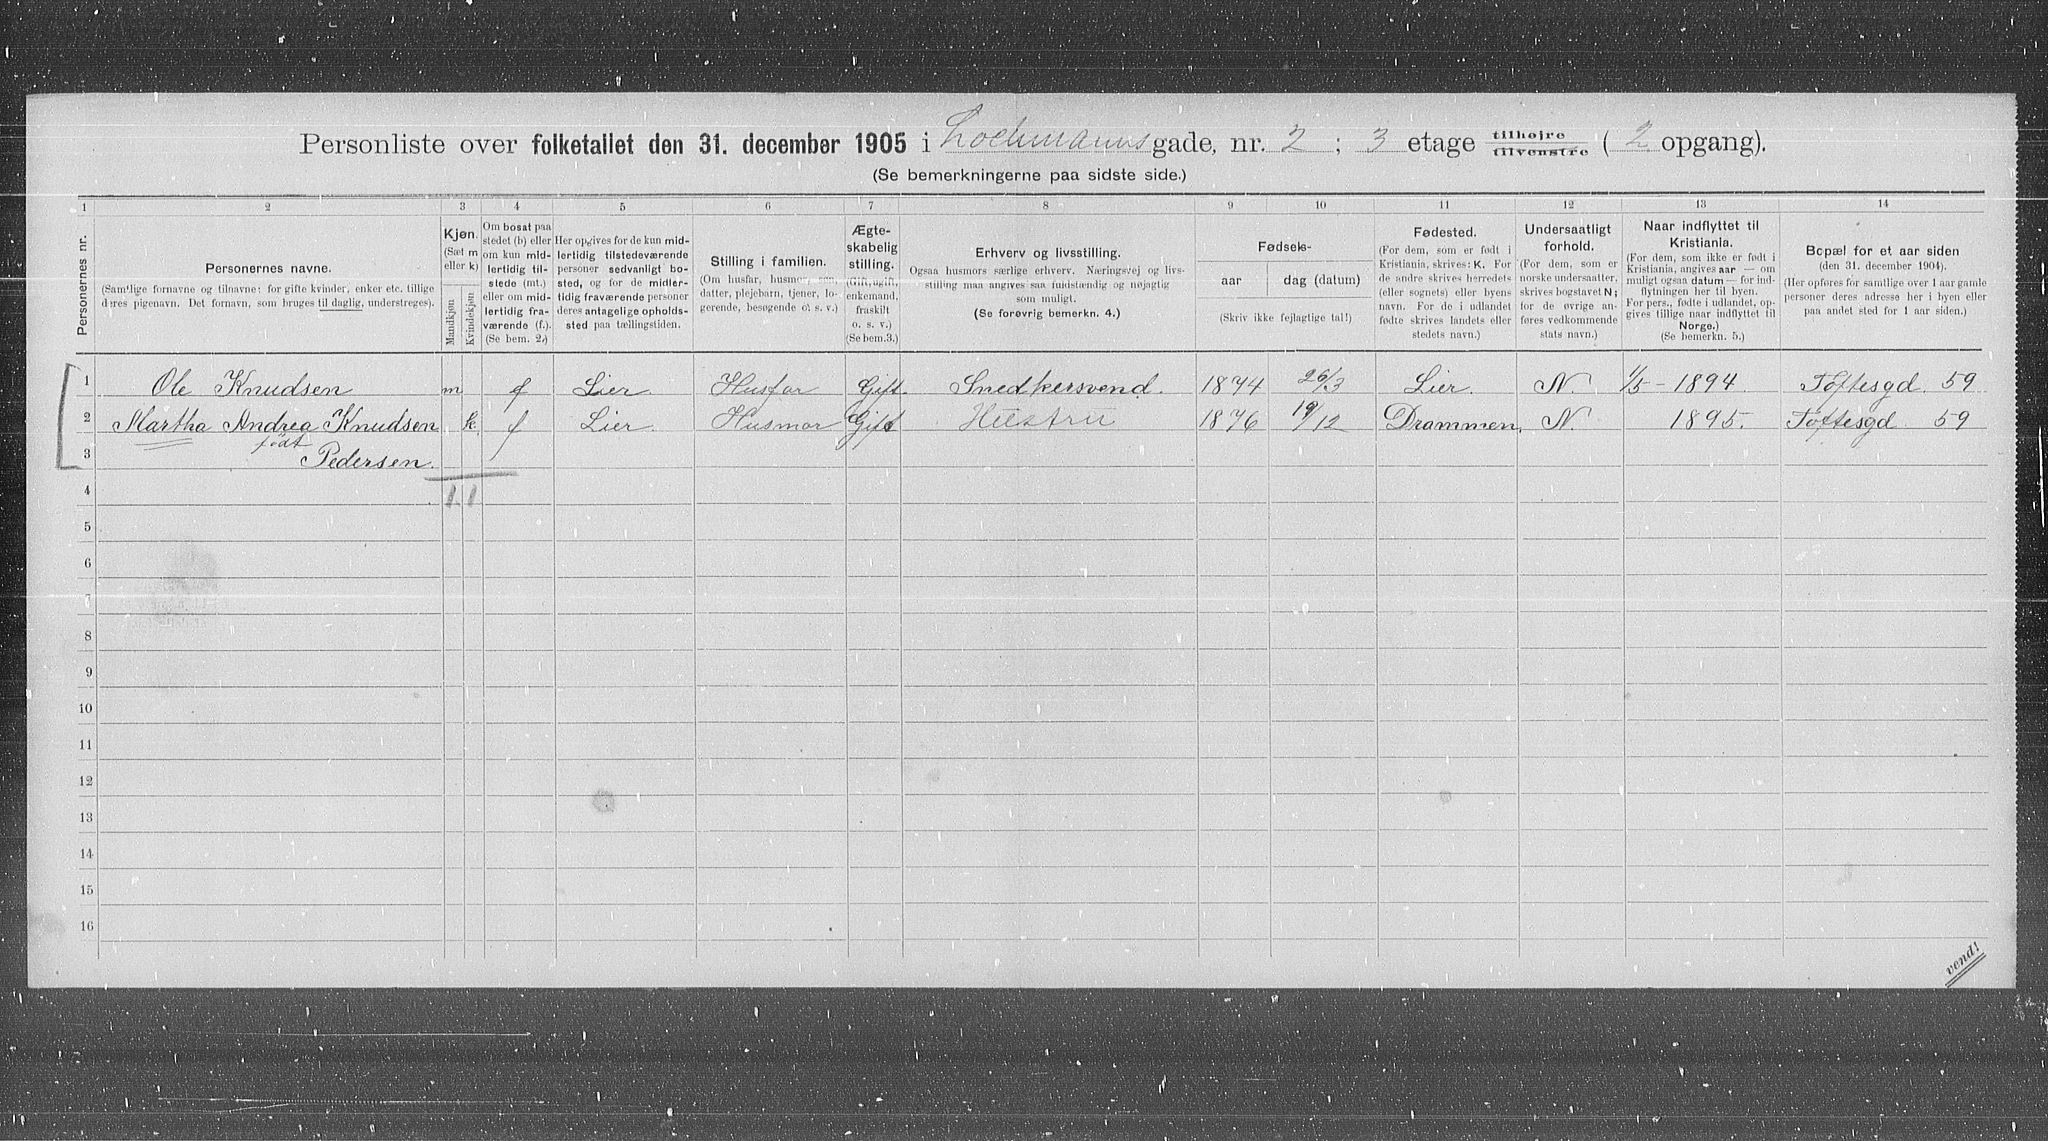 Personliste over folketallet den 31. december 1905 i Lochmanns gade, nr. 2 ; 3 etage tilhøjre tilvenstre ( 2 opgang).
(Se bemerkningerne paa sidste side.)
1 2 3 4 5 6 7 8 9 10 11 12 13 14
Personernes nr.
Personernes navne.
(Samtlige fornavne og tilnavne; for gifte kvinder, enker etc. tillige
deres pigenavn. Det fornavn, som bruges til daglig, understreges).
Kjøn.
(Sæt m
eller k)
Mandkjøn
Kvindekjøn
Om bosat paa
stedet (b) eller
om kun mid-
lertidig til-
stede (mt.)
eller om mid-
lertidig fra-
værende (f.).
(Se bem. 2.)
Her opgives for de kun mid-
lertidig tilstedeværende
personer sedvanligt bo-
sted, og for de midler-
tidig fraværende personer
deres antagelige opholds-
sted paa tællingstiden.
Stilling i familien.
(Om husfar, husmor, søn,
datter, plejebarn, tjener, lo-
gerende, besøgende o. s. v.)
Ægte-
skabelig
stilling.
(Gift, ugift,
enkemand,
fraskilt
o. s. v.)
(Se bem.3.)
Erhverv og livsstilling.
Ogsaa husmors særlige erhverv. Næringsvej og livs-
stilling maa angives saa fuldstændig og nøjagtig
som muligt.
(Se forøvrig bemerkn. 4.)
Fødsels-
aar
dag (datum)
(Skriv ikke fejlagtige tal!)
Fødested.
(For dem, som er født i
Kristiania, skrives: K. For
de andre skrives herredets
(eller sognets) eller byens
navn. For de i udlandet
fødte skrives landets eller
stedets navn.)
Undersaatligt
forhold.
(For dem, som er
norske undersaatter,
skrives bogstavet N;
for de øvrige an-
føres vedkommende
stats navn.)
Naar indflyttet til
Kristiania.
(For dem, som ikke er født i
Kristiania, angives aar — om
muligt ogsaa datum — for ind-
flytningen her til byen.
For pers., fødte i udlandet, op-
gives tillige naar indflyttet til
Norge.)
(Se bemerkn. 5.)
Bopæl for et aar siden
(den 31. december 1904).
(Her opføres for samtlige over 1 aar gamle
personer deres adresse her i byen eller
paa andet sted for 1 aar siden.)
1 Ole Knudsen m f Lier Husfar Gift. Snedkersvend. 1874 26/3 Lier. N. 1/5 - 1894 Toftesgd. 59
2 Martha Andrea Knudsen k. f Lier. Husmor Gift Hustru 1876 19/12 Drammen. N. 1895. Toftesgd 59
født
3 Pedersen.
4 1. 1
5
6
7
8
9
10
11
12
13
14
15
16
vend!